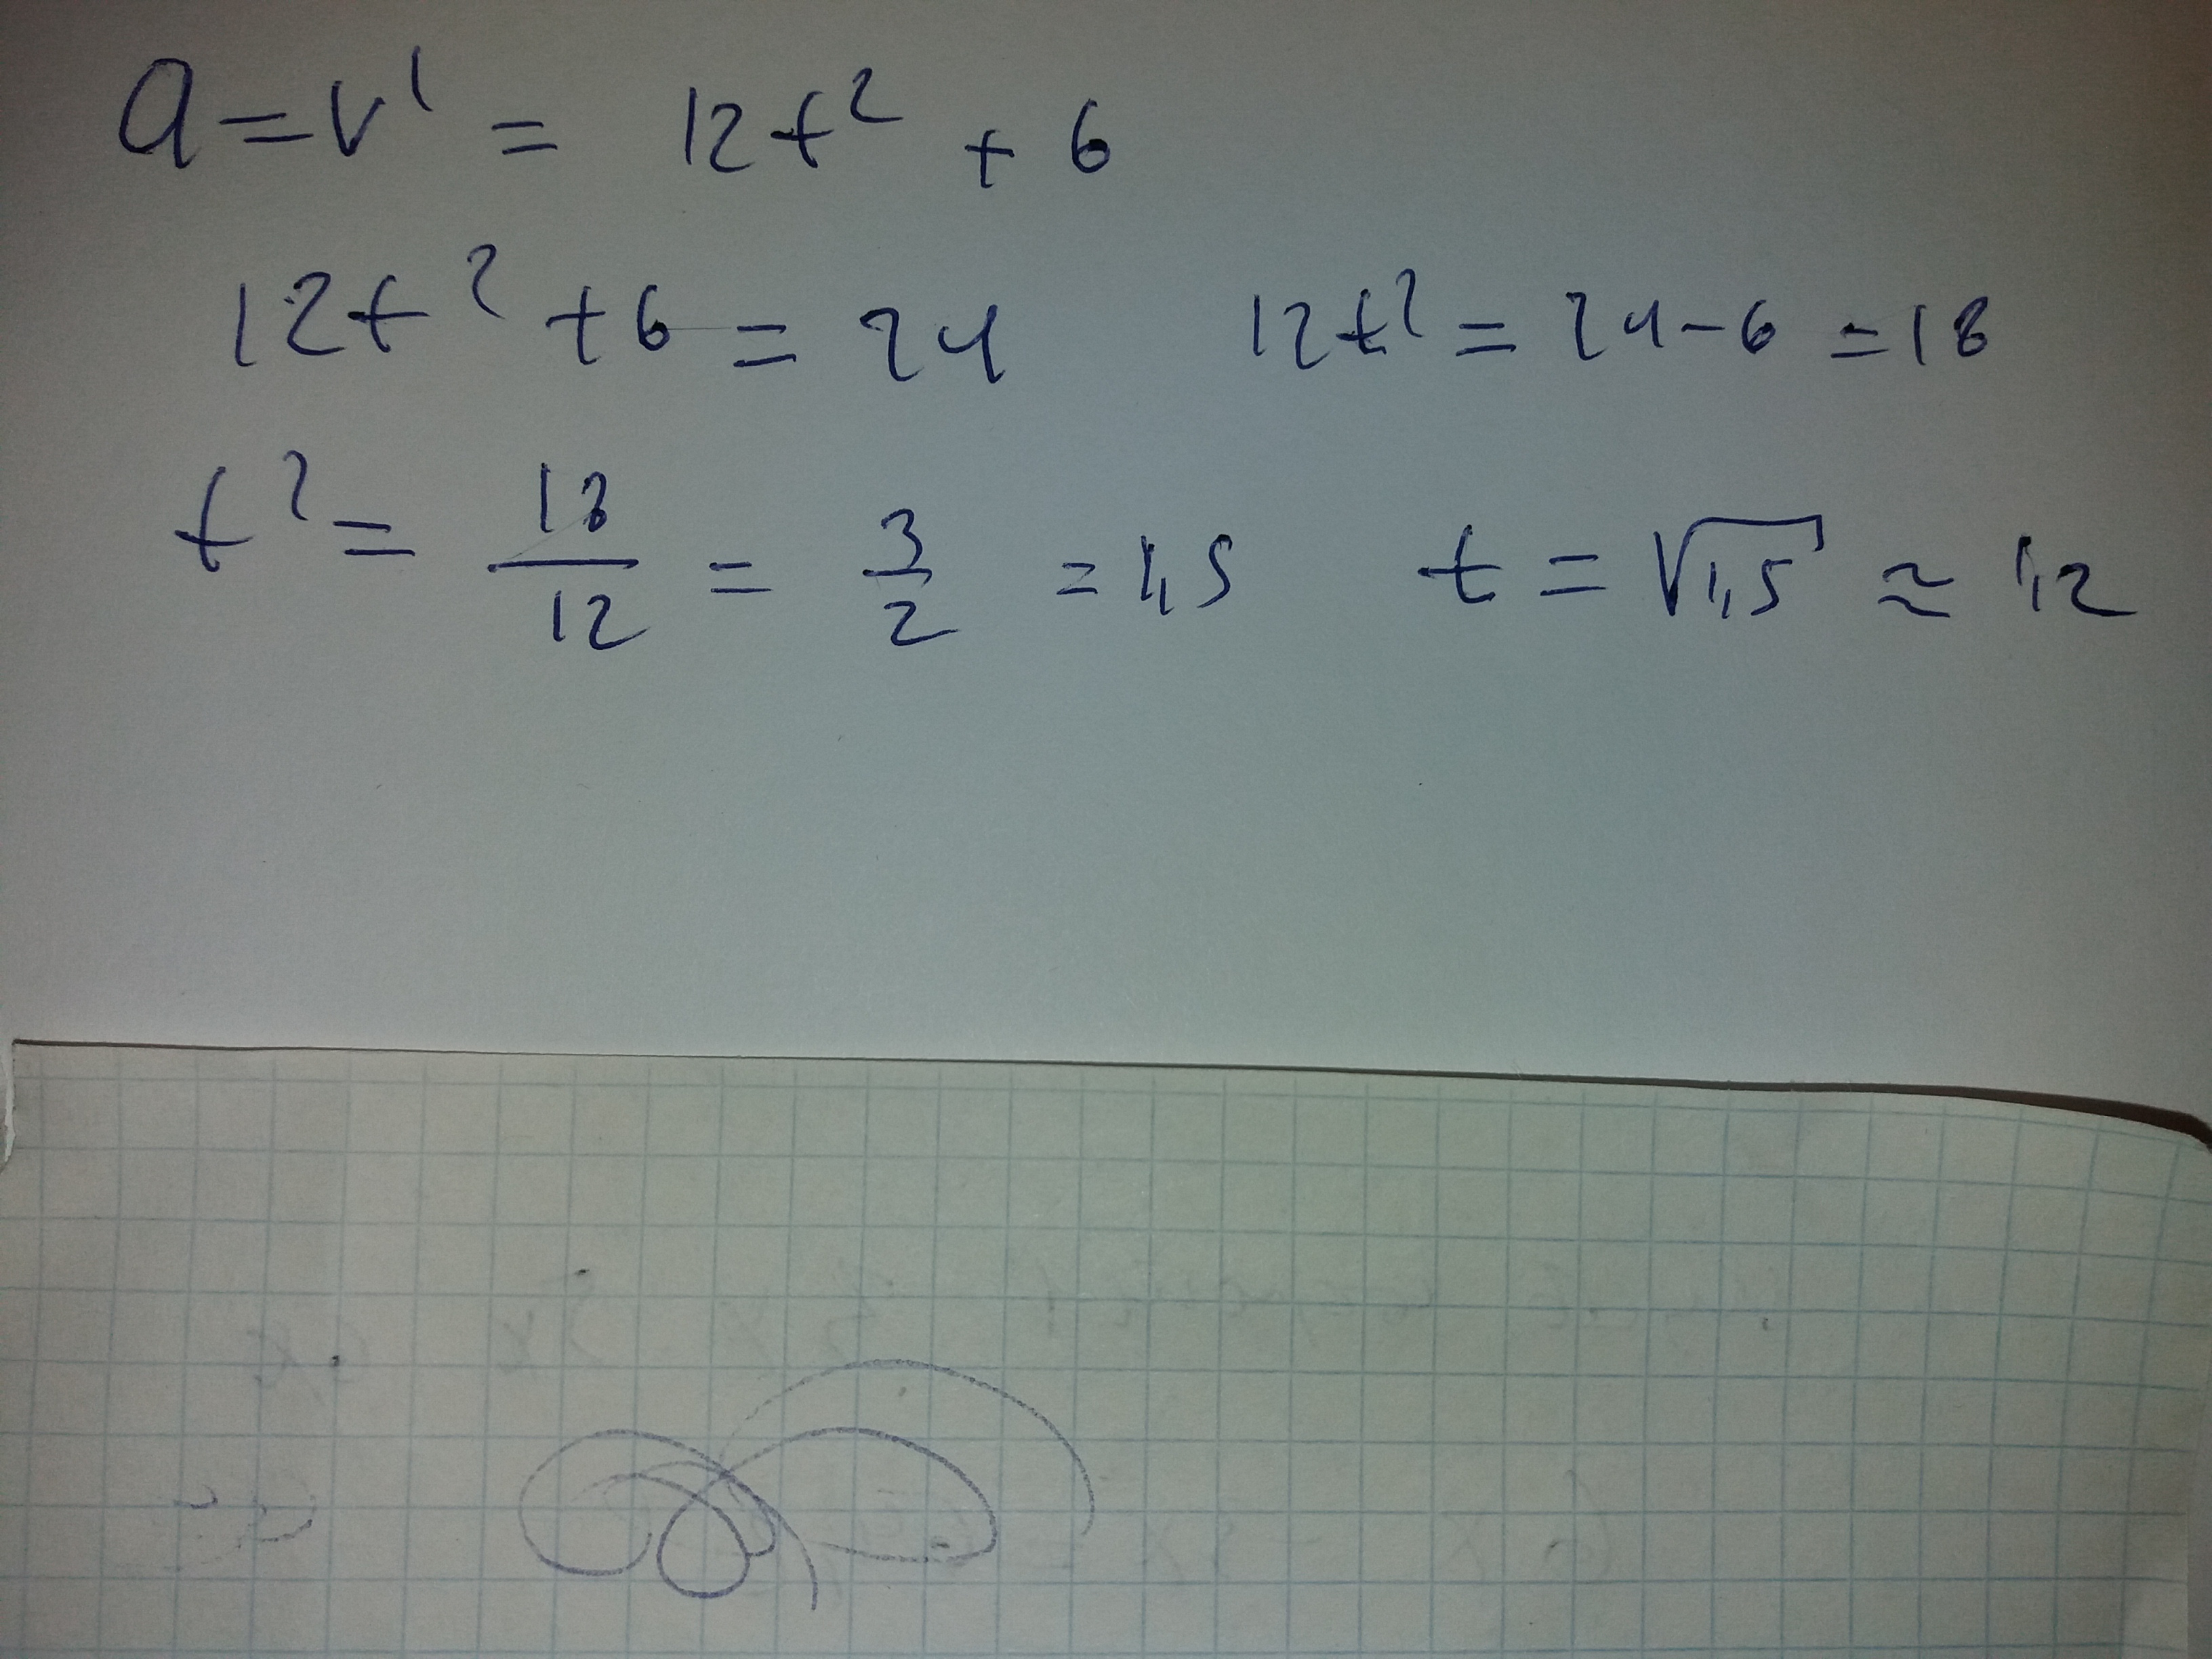 a = v' = 12t² + 6
12t² + 6 = 24 12t² = 24 - 6 = 18
t² = 18/12 = 3/2 = 1,5 t = √1,5 ≈ 1,2